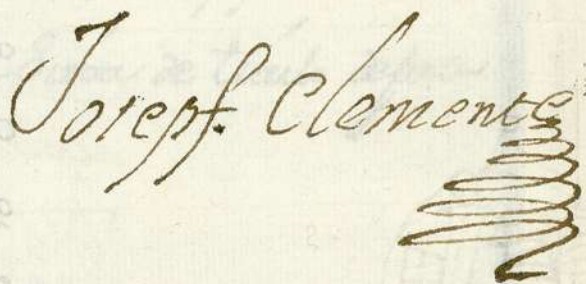 Josepf. Clemente